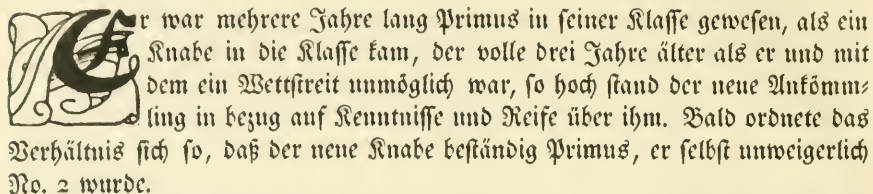 Er war mehrere Jahre lang Primus in seiner Klasse gewesen, als ein
Knabe in die Klasse kam, der volle drei Jahre älter als er und mit
dem ein Wettstreit unmöglich war, so hoch stand der neue Ankömm-
ling in bezug auf Kenntnisse und Reife über ihm. Bald ordnete das
Verhältnis sich so, daß der neue Knabe beständig Primus, er selbst unweigerlich
No. 2 wurde.